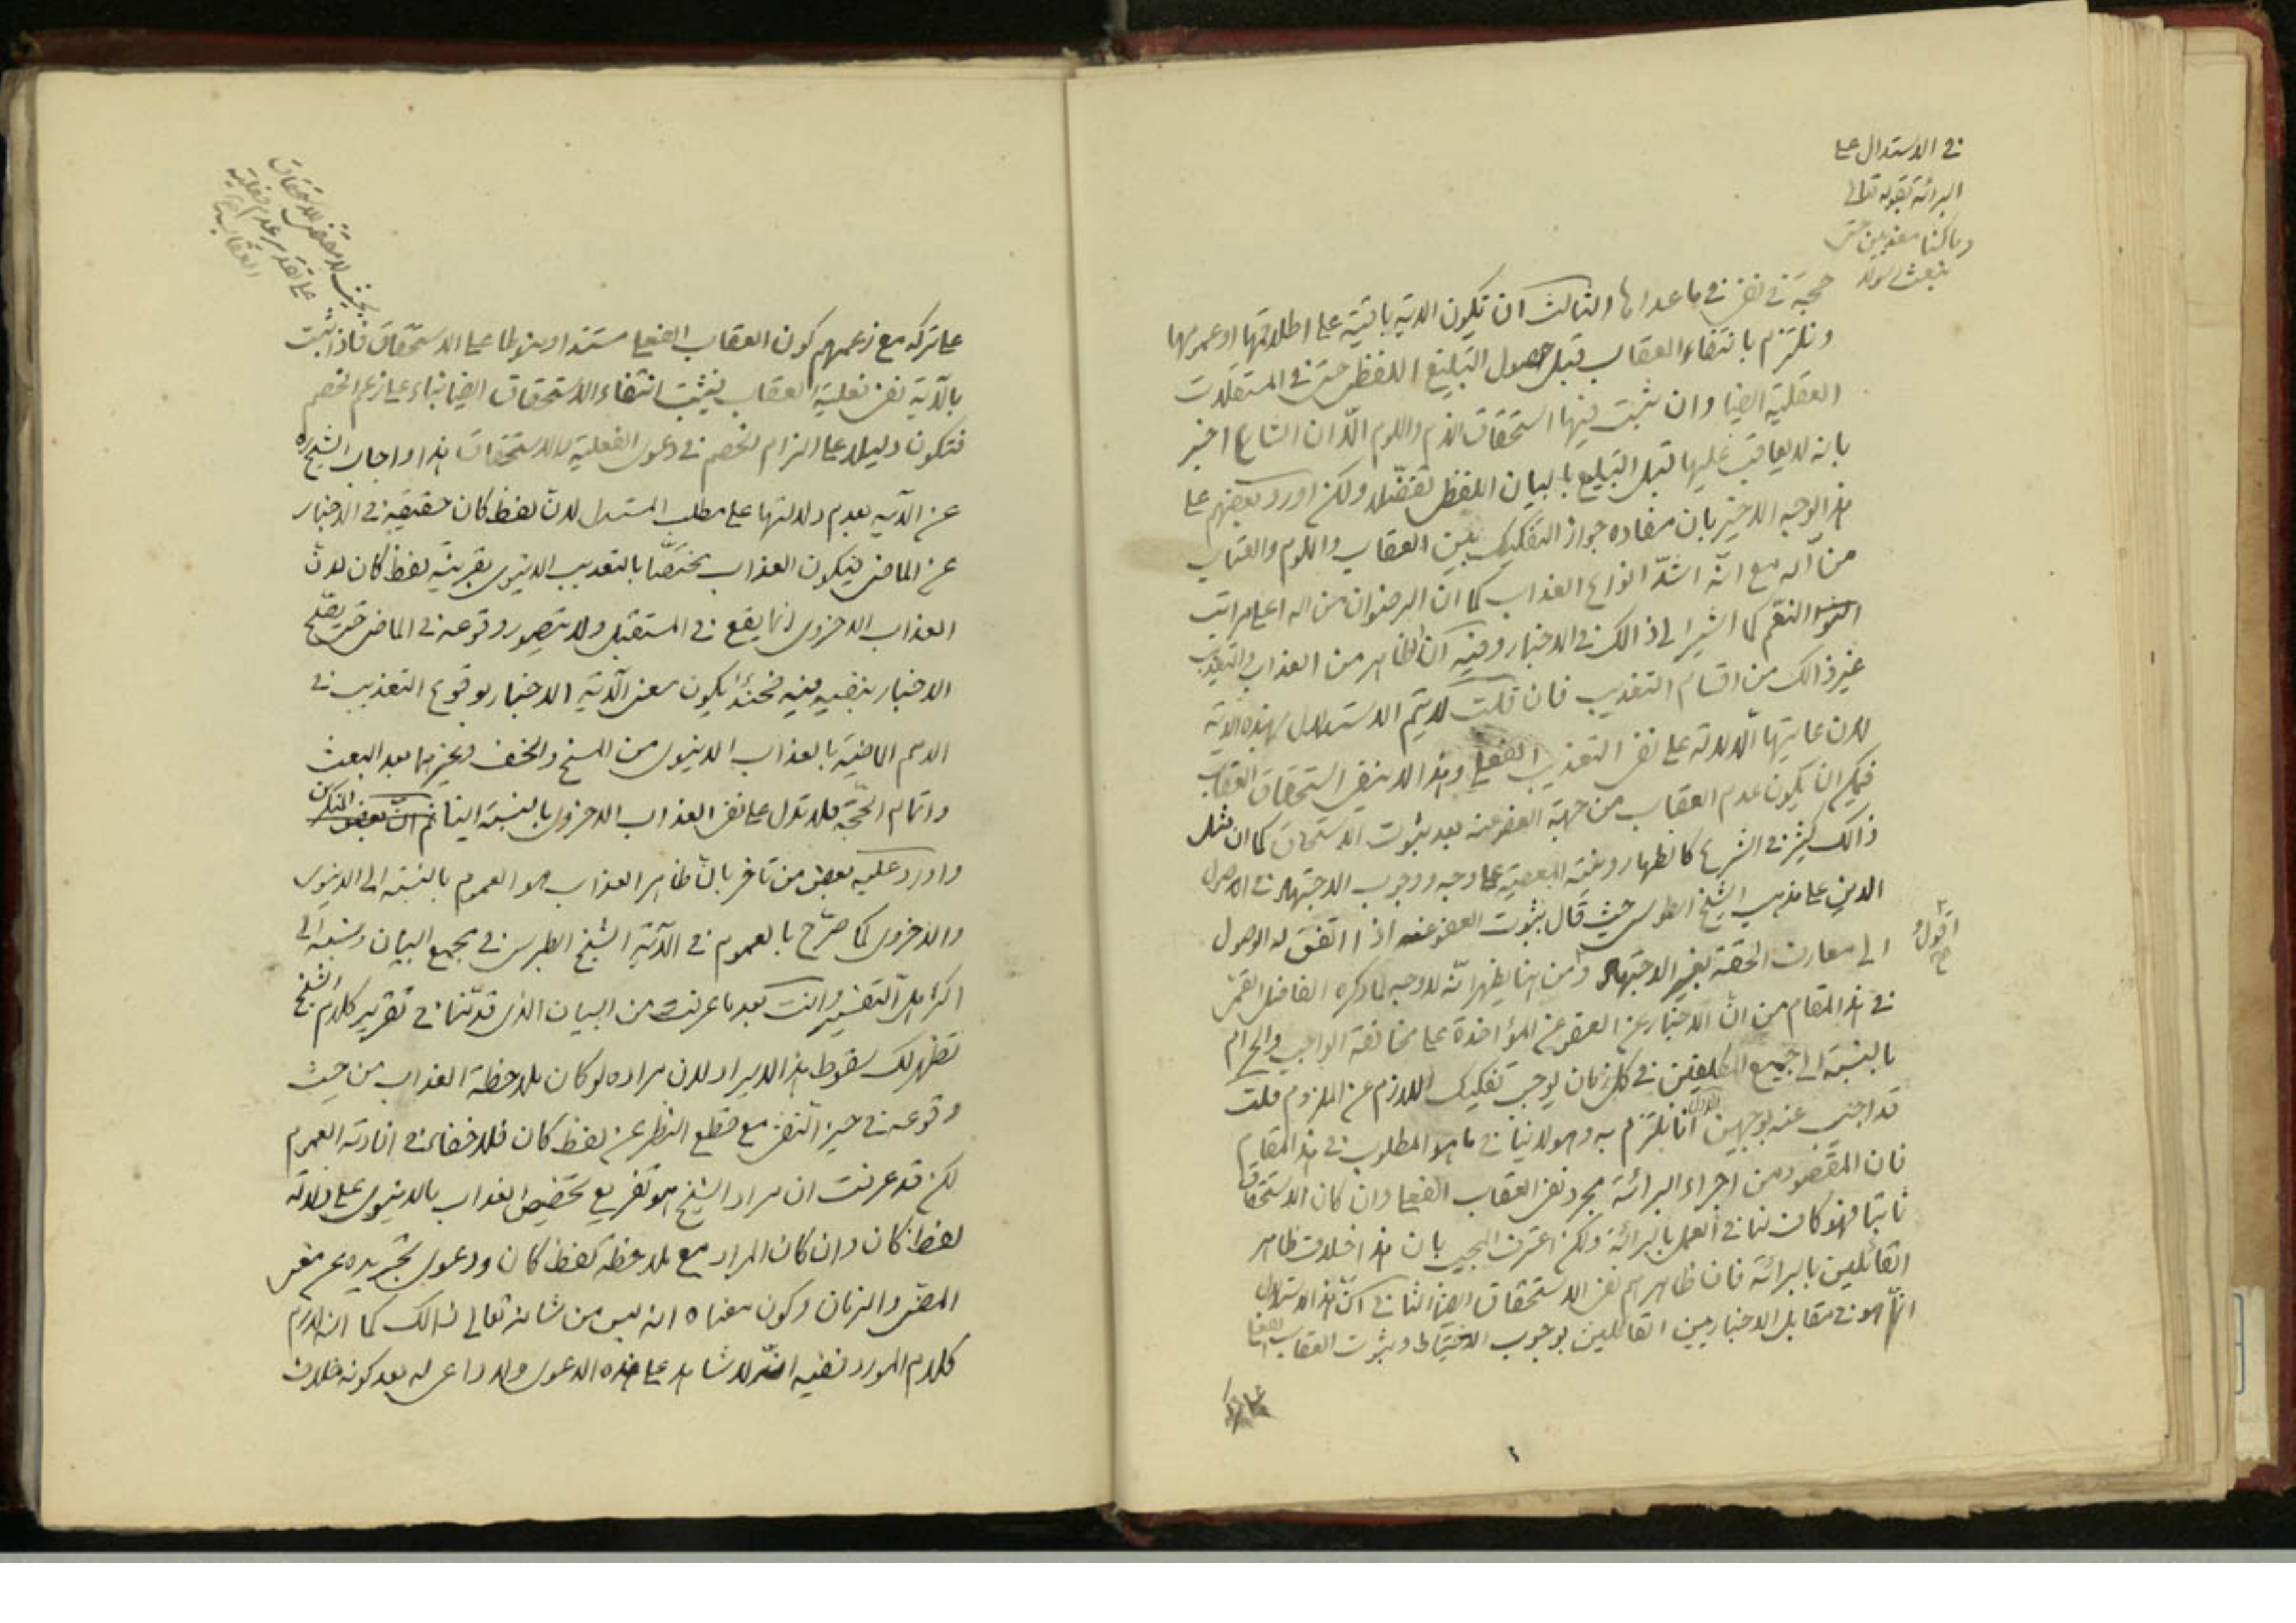 في الاستدلال على
البرائة بقوله تعالى
وما كنا معذبين حتى
نبعث رسولا
حجة في نفي ما عداها الثالث ان تكون الاية باقية على اطلاقها او عمومها
ونلتزم بانتفاء العقاب قبل حصول التبليغ اللفظي حتى في المستقلات
العقلية ايضا وان ثبت فيها استحقاق الذم واللوم الّا ان الشارع اخبر
بانه لا يعاقب عليها قبل التبليغ بالبيان اللفظي تفضّلا ولكن اورد بعضهم على
هذا الوجه الاخير بان مفاده جواز التفكيك بين العقاب واللوم والعتاب
من اله مع انّه اشدّ انواع العذاب كما ان الرضوان من اله اعلى مراتب
النعم كما اشير الى ذالك في الاخبار وفيه ان الظاهر من العذاب والتعذيب
غير ذالك من اقسام التعذيب فان قلت لا يتم الاستدلال بهذه الاية
لان غايتها الدلالة على نفي التعذيب الفعلي وهذا لا ينفي استحقاق العقاب
فيمكن ان يكون عدم العقاب من جهة العفو عنه بعد ثبوت الاستحقاق كما ان مثل
ذالك كثير في الشرع كالظهار ونية المعصية على وجه ووجوب الاجتهاد في الاصول
الدين على مذهب الشيخ الطوسي حيث قال بثبوت العفو عنه اذا اتفق له الوصول
الى معارف الحقة بغير الاجتهاد ومن هنا يظهر انّه لا وجه لما ذكره الفاضل القمي
اقول
في هذا المقام من انّ الاخبار عن العفو عن المؤاخذة على مخالفة الواجب والحرام
بالنسبة الى جميع المكلفين في كل زمان يوجب تفكيك اللازم عن الملزوم قلت
قد اجيب عنه بوجهين الاول انا نلتزم به وهو لا ينافي ما هو المطلوب في هذا المقام
فان المقصود من اجراء البرائة مجرد نفي العقاب الفعلي وان كان الاستحقاق
ثابتا فهو كاف لنا في العمل بالبرائة ولكن اعترف المجيب بان هذا خلاف ظاهر
القائلين بالبرائة فان ظاهرهم نفي الاستحقاق ايضا الثاني انّ هذا الاستدلال
انّما هو في مقابل الاخباريين القائلين بوجوب الاحتياط وثبوت العقاب الفعلي
على تركه
على تقدير عدم فعلية
العقاب
على تركه مع زعمهم كون العقاب الفعلي مستندا ومنوطا على الاستحقاق فاذا ثبت
بالآية نفي فعلية العقاب فيثبت انتفاء الاستحقاق ايضا بناء على زعم الخصم
فتكون دليلا على الزام الخصم في دعوى الفعلية لا الاستحقاق هذا واجاب الشيخ ره
عن الآية بعدم دلالتها على مطلب المستدل لانّ لفظ كان حقيقة في الاخبار
عن الماضي فيكون العذاب مختصّا بالتعذيب الدنيوي بقرينة لفظ كان لانّ
العذاب الاخروي انما يقع في المستقبل ولا يتصور وقوعه في الماضي حتى يصلح
الاخبار بنفيه فيه فحينئذ يكون معنى الآية الاخبار بوقوع التعذيب في
الامم الماضية بالعذاب الدنيوي من المسخ والخسف ونحوهما بعد البعث
واتمام الحجّة فلا تدل على نفي العذاب الاخروي بالنسبة الينا ثم انّ بعض
واورد عليه بعض من تاخر بانّ ظاهر العذاب هو العموم بالنسبة الى الدنيوي
والاخروي كما صرّح بالعموم في الآية الشيخ الطبرسي في مجمع البيان ونسبه الى
اكثر اهل التفسير وانت بعد ما عرفت من البيان الذي قدّمنا في تقرير كلام الشيخ
تظهر لك سقوط هذا الايراد لان مراده لو كان ملاحظة العذاب من حيث
وقوعه في حيز النفي مع قطع النظر عن لفظ كان فلا خفاء في افادته العموم
لكن قد عرفت ان مراد الشيخ هو تفريع تخصيص العذاب بالدنيوي على دلالة
لفظ كان وان كان المراد مع ملاحظة لفظ كان ودعوى تجريده عن معنى
المضي والزمان وكون معناه انه ليس من شانه تعالى ذالك كما ان لازم
كلام المورد ففيه انّه لا شاهد على هذه الدعوى ولا داعي له بعد كونه خلاف